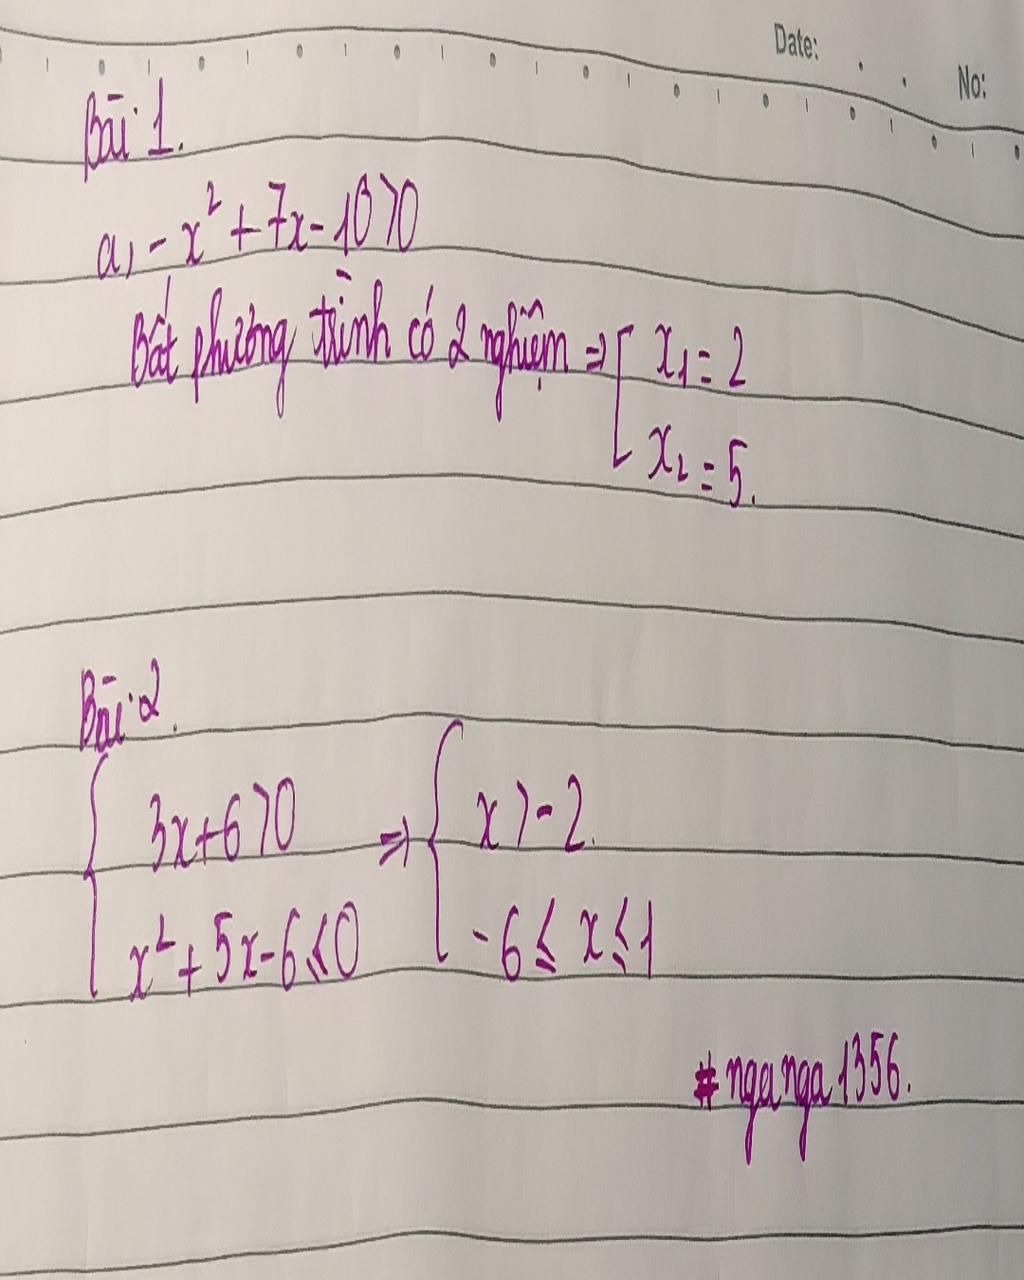 Date:
No:
Bài 1.
a, -x² + 7x - 10 > 0
Bất phương trình có 2 nghiệm ⇒ [ x₁ = 2
x₂ = 5.
Bài 2.
{ 3x + 6 > 0 ⇒ { x > -2.
x² + 5x - 6 ≤ 0 -6 ≤ x ≤ 1
#nganga1356.